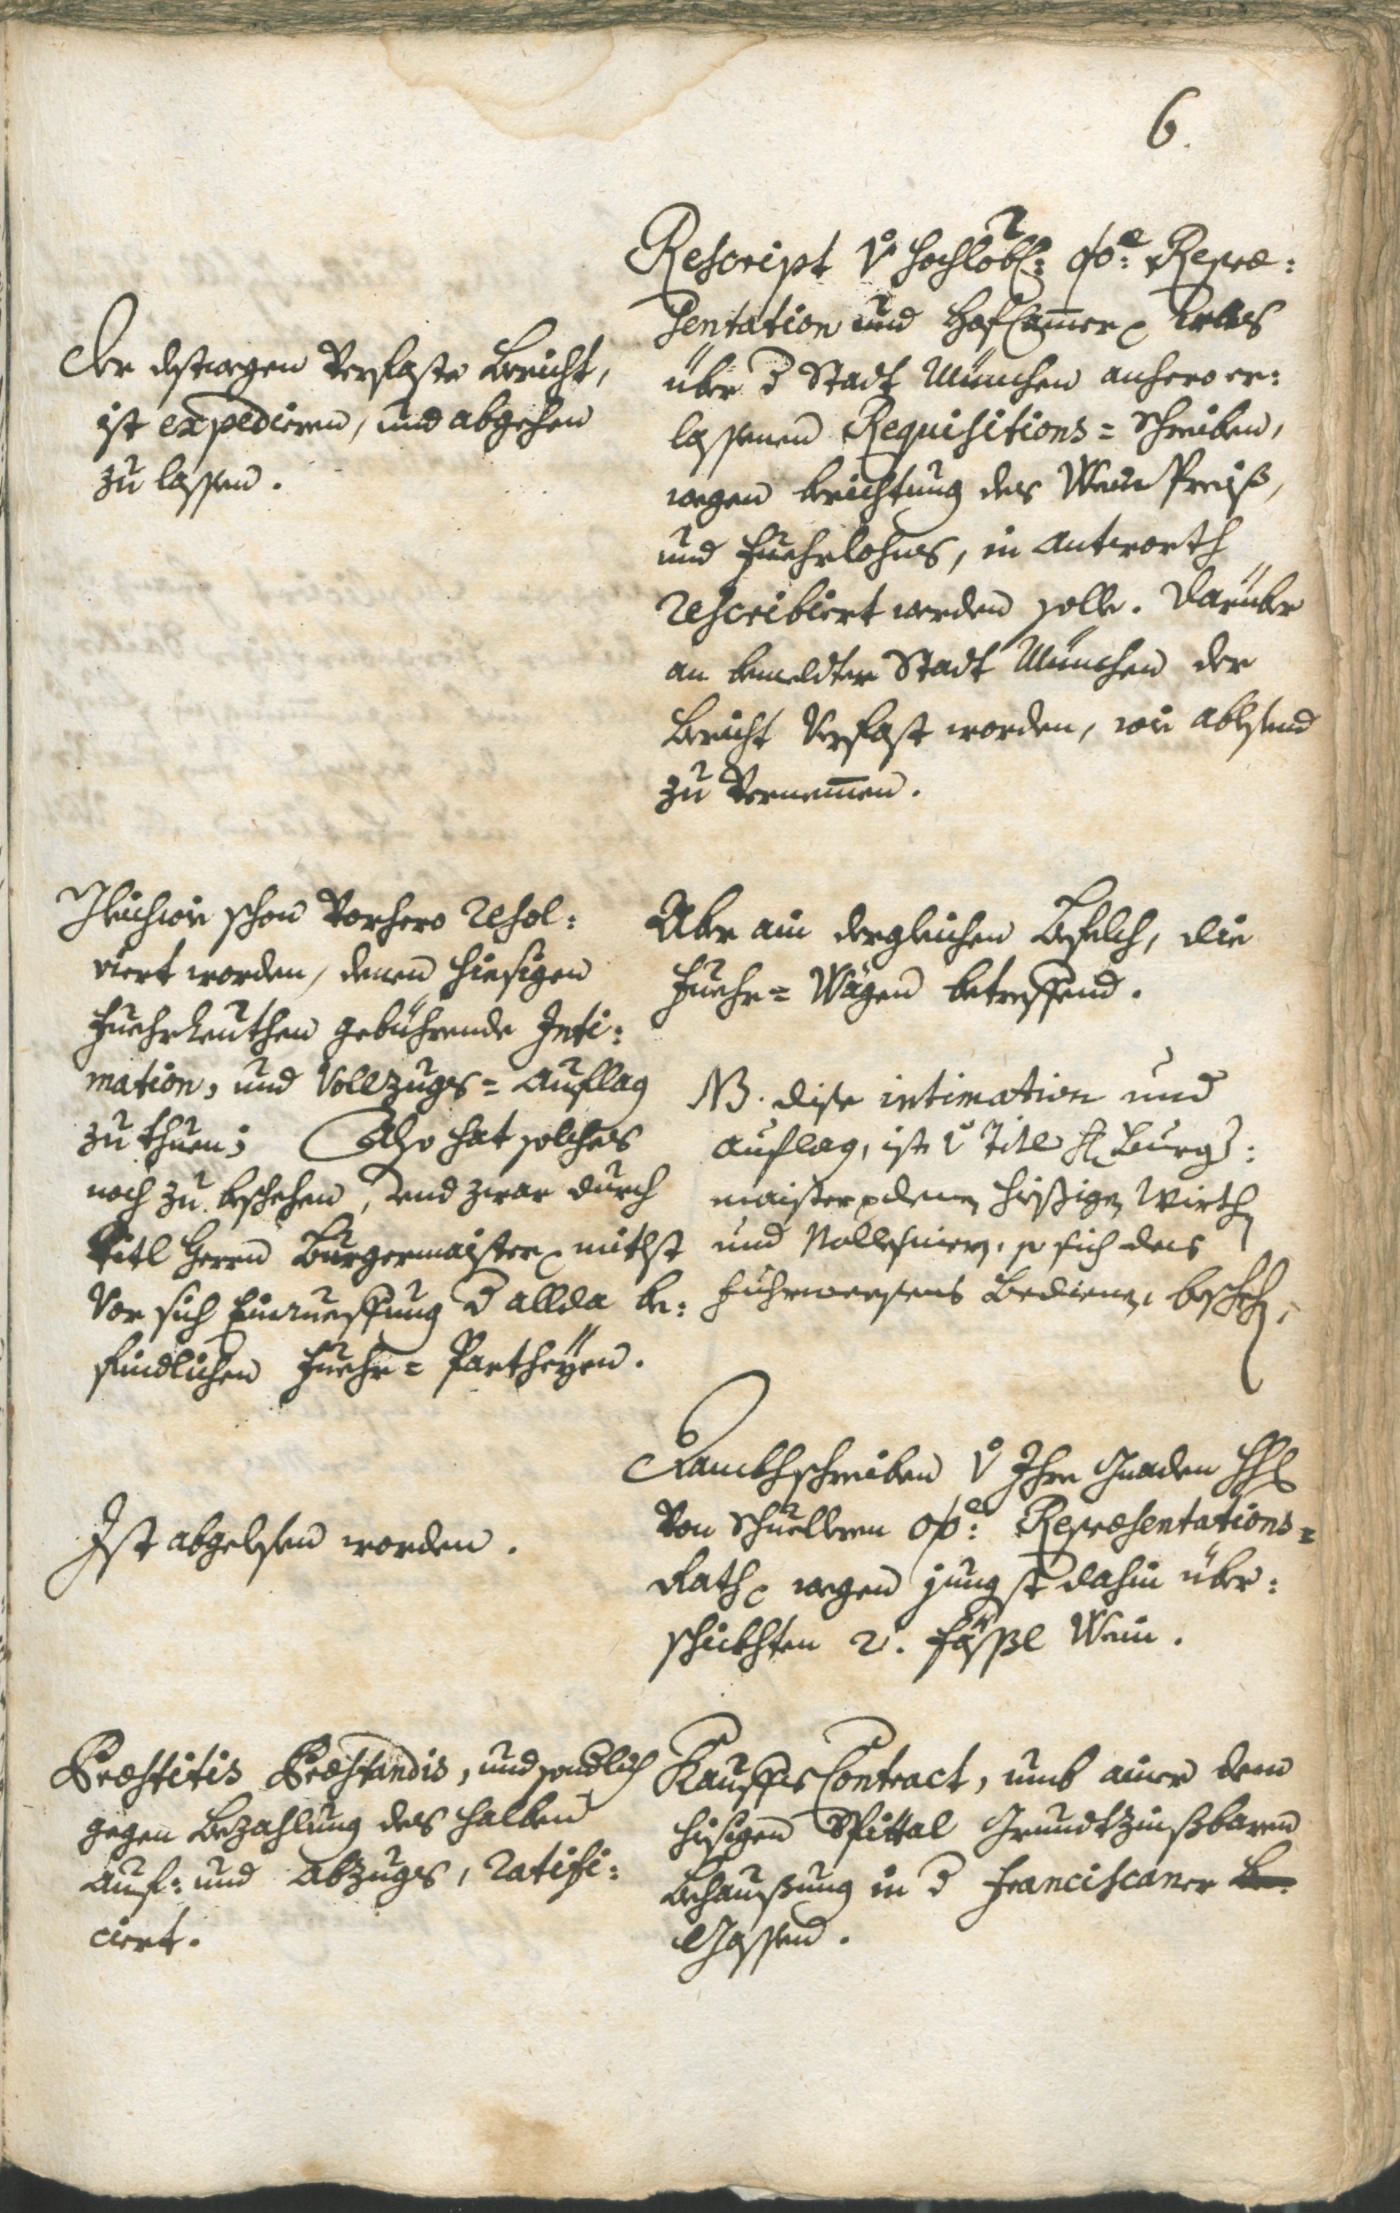 6.
Rescript v. hochlöbl: oö:e Repræ:
sentation und HofCammer, was
über d Stadt München anhero er:
lassenen Requisitions= Schreiben,
wegen berichtung des Wein Preiß,
und Fuehrlohns, in Antworth
rescribiert werden solle. Darüber
an bemeldter Stadt München der
Bericht Verfast worden, wie ablesend
zu Vernemmen.
Der destwegen Verfaste Bericht,
ist expedieren, und abgehen
zu lassen.
Aber ain dergleichen Befelch, die
Fuehr= Wägen betreffend.
Gleichwie schon Vorhero resol:
viert worden, denen hiesigen
Fuehrleuthen gebührende Inti:
mation, und Vollzugs= Auflag
zu thuen; Also hat solches
noch zu beschehen, und zwar durch
Titl Herrn Burgermaister, mitlst
Vor sich Einrueffung d allda be:
findlichen Fuehr= Partheyen.
NB. dise intimation und
auflag, ist v Titl H Burger:
maister denen hießigen Wirth
und so sich des
fuhrweesens bedienen, beschehen.
Danckhschreiben v Ihro Gnaden
Von Schuellern oö:e Repræsentations=
Rath, wegen jungst dahin über:
schickhten 2. fässl Wein.
Ist abgelesen worden.
Kauffs Contract, umb ainer dem
hiesigen Spittal Grundtzinßbaren
Behaußung in d Franciscaner Be:
Gassen.
Præstitis Præstandis, und sondlich
gegen Bezahlung des halben
Auf= und Abzugs, ratifi:
ciert.